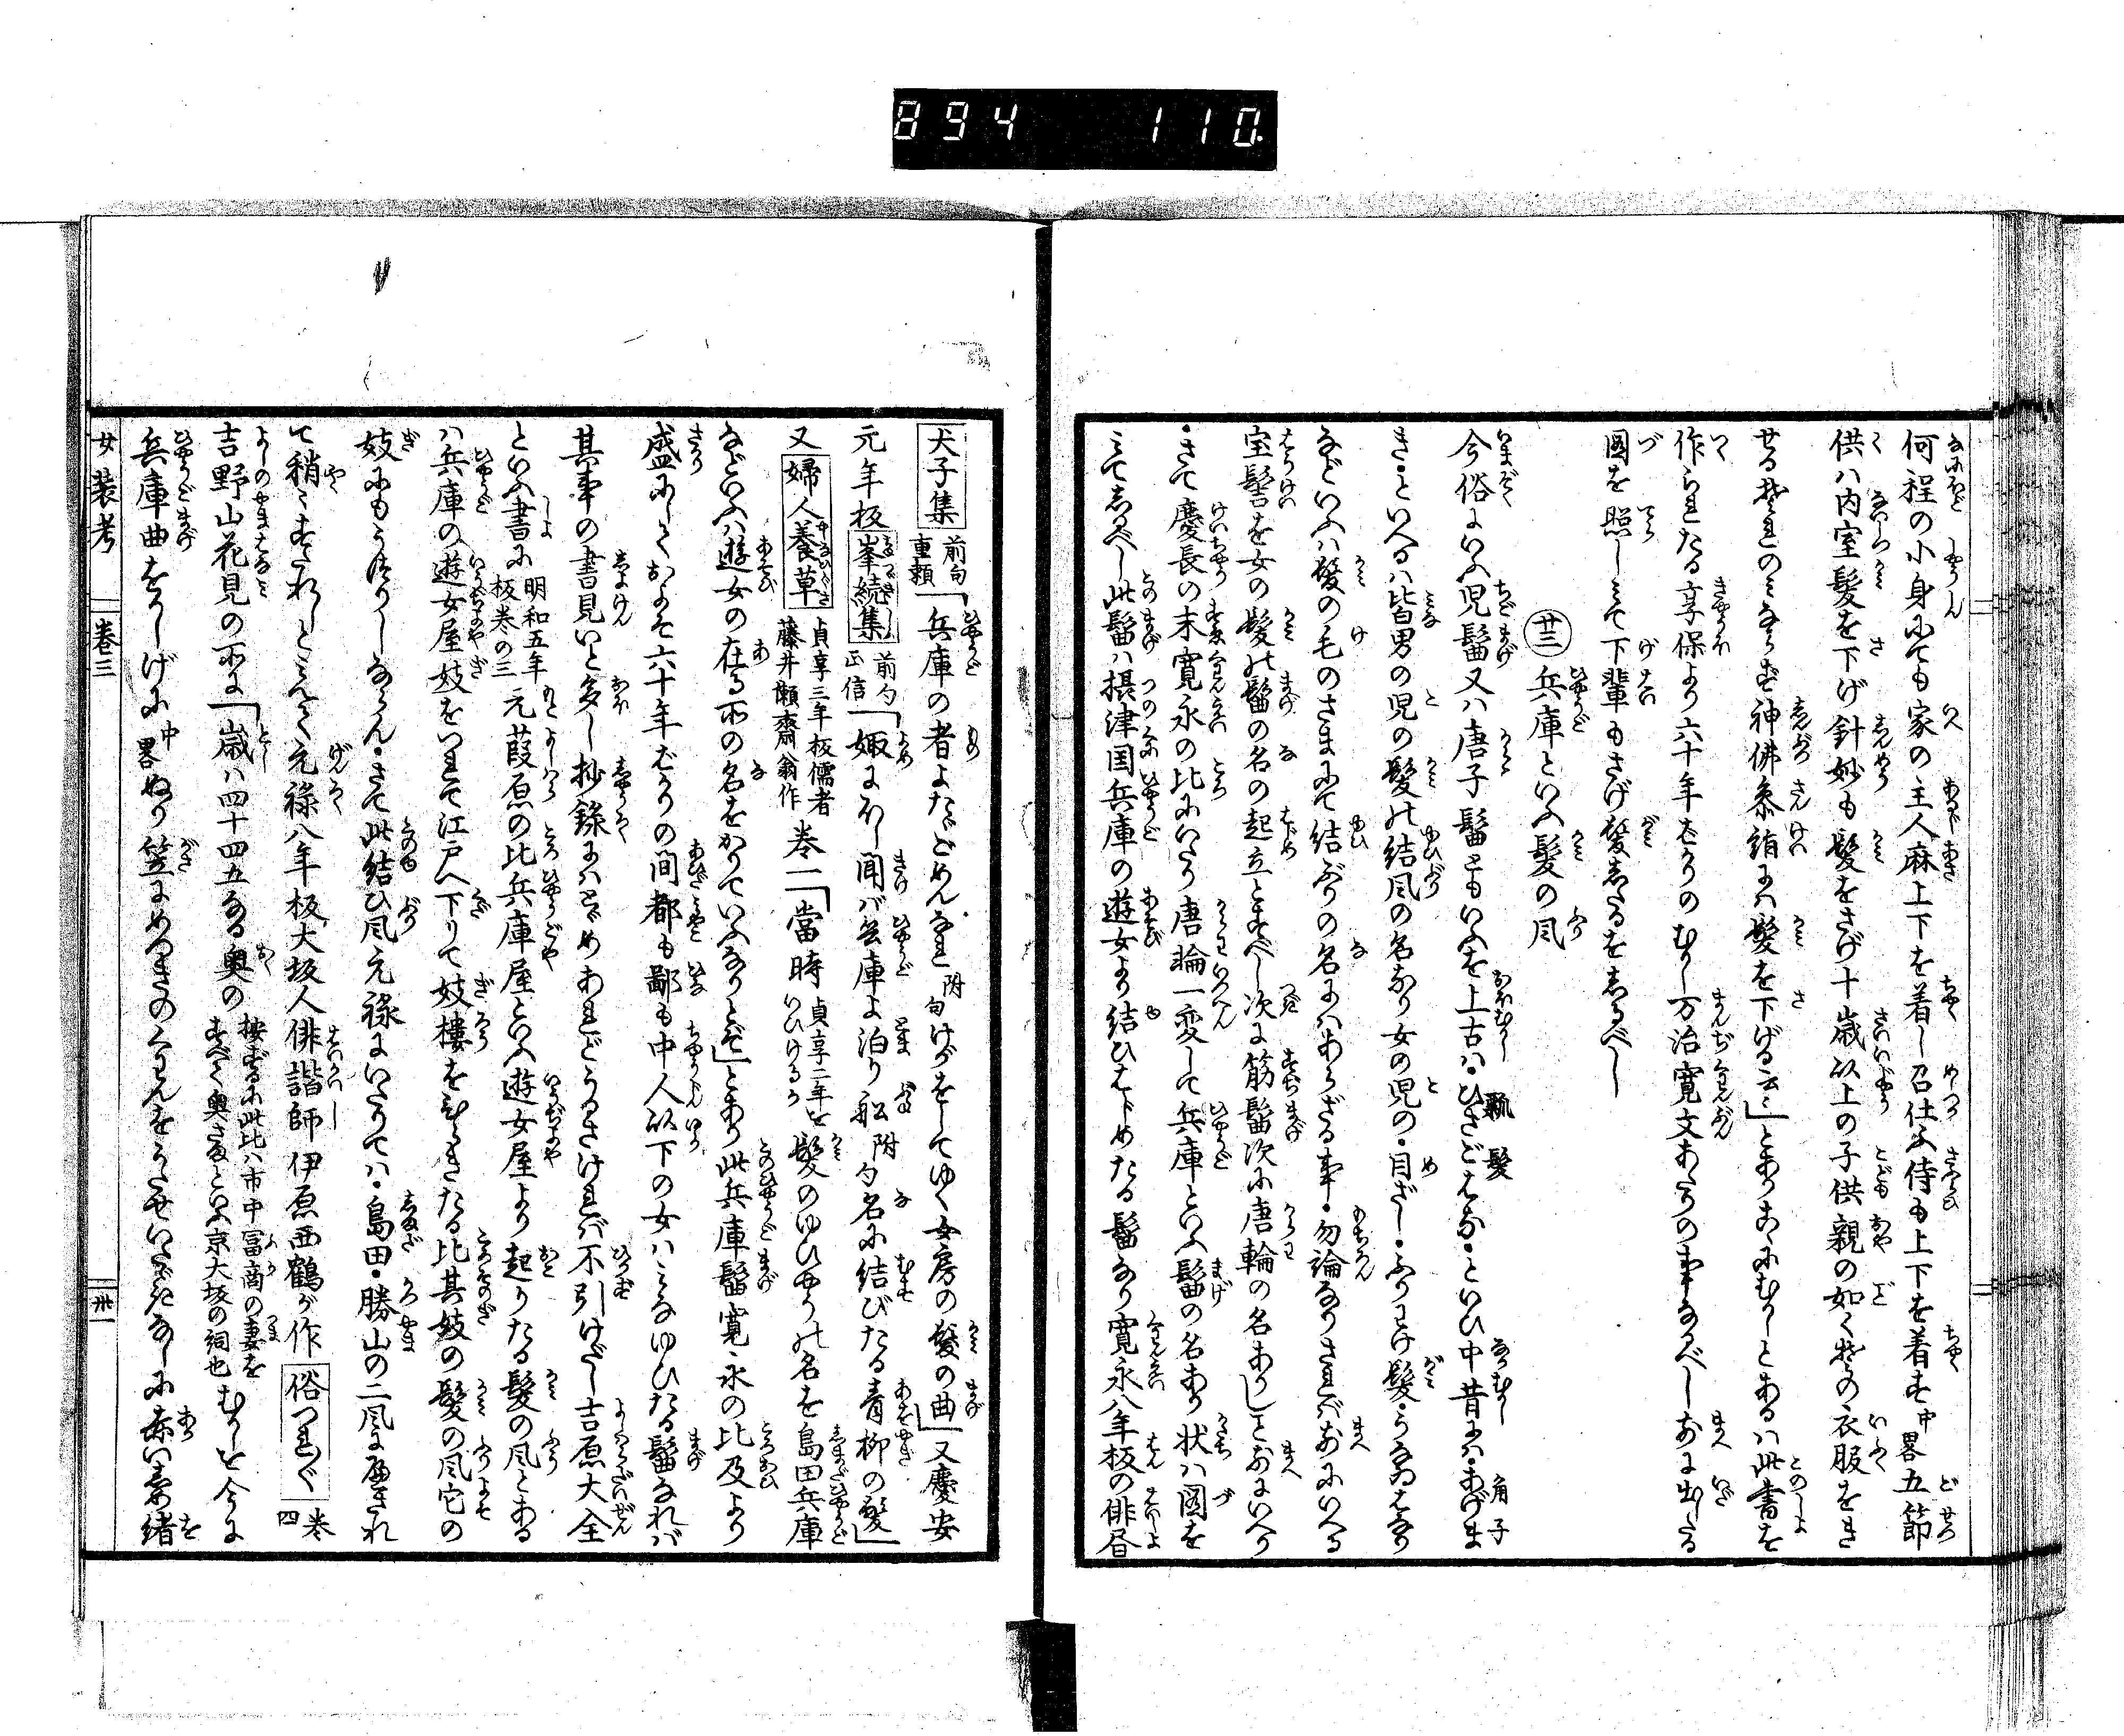 894 110
何程の小身にても家の主人麻上下を着し召仕ふ侍も上下を着ず中畧五節
供ハ内室髪を下げ針妙も髪をさげ十歳以上の子供親の如くそれの衣服をき
せるそれのミならず神佛参詣にハ髪を下げる云々」とありこゝにむかしとあるハ此書を
作られたる享保より六十年ばかりのむかし万治寛文あたりの事なるべしまへに出したる
圖を照しミて下輩もさげ髪したるをしるべし
㊉三 兵庫といふ髪の風
今俗にいふ児髷又ハ唐子髷ともいふを上古ハ・ひさごはな・といひ中昔にハ・あげま
き・といへるハ皆男の児の髪の結風の名なり女の児の・目ざし・ふりわけ髪・うなゐはなり
などいふハ髪の毛のさまにて結ぶりの名にハあらざる事・勿論なりされバまへにいへる
宝髻を女の髪の髷の名の起立とすべし次に筋髷次に唐輪の名ありしとまへにいへり
・さて慶長の末寛永の比にいたり唐輪一変して兵庫といふ髷の名あり状ハ図を
ミてしるべし此髷ハ摂津国兵庫の遊女より結ひはじめたる髷なり寛永八年板の俳昏
犬子集 前句 重頼「兵庫の者よたゞどめんなれ 附句 けがをしてゆく女房の髪の曲」又慶安
元年板 峯続集 前句 正信「娵にほし聞バ兵庫よ泊り船 附句 名に結びたる青柳の髪」
又 婦人養草 貞享三年板儒者 藤井懶齋翁作 巻二「當時 貞享二年を いひけるか 髪のゆひやうの名を島田兵庫
などいふハ遊女の在る所の名をかりていふなりとぞ」とあり此兵庫髷寛永の比及より
盛にしておよそ六十年ばかりの間都も鄙も中人以下の女ハミなゆひたる髷なれバ
其事の書見いと多し抄録にハとゞめあれどうるさけれバ不引けだし吉原大全
といふ書に 明和五年 板巻の三 元葭原の比兵庫屋といふ遊女屋より起りたる髪の風とある
ハ兵庫の遊女屋妓をつれて江戸へ下りて妓樓をひらきたる比其妓の髪の風它の
妓にもうつりしならん・さて此結ひ風元禄にいたりてハ・島田・勝山の二風に廃され
て稍々すたれしとミえて元禄八年板大坂人俳諧師伊原西鶴が作 俗つれ〴〵 巻四
吉野山花見の所に「歳ハ四十四五なる奥の 按ずるに此比ハ市中冨商の妻を すべて奥さまといふ京大坂の詞也 むかしを今に
兵庫曲をかしげに中畧ぬり笠に
女装考 巻三 卅一